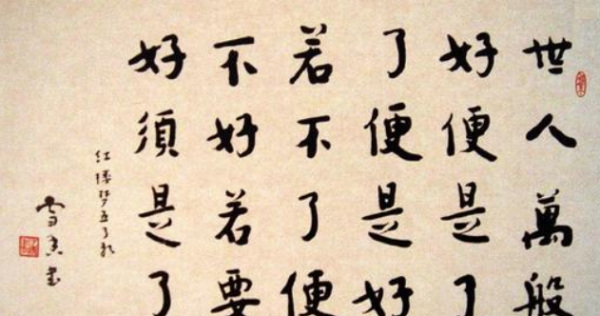 世人萬般
好便是了
了便是好
若不了便
不好若要
好須是了
紅樓夢
雪
書